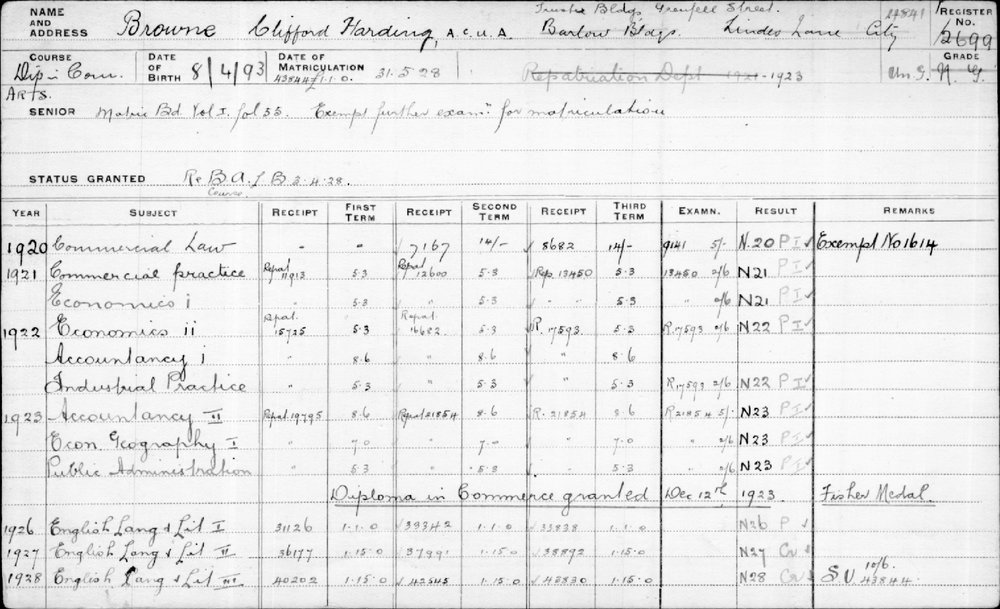 NAME AND ADDRESS Browne Clifford Harding, A.C.U.A. Trustee Bldgs Grenfell Street. Barlow Bldgs. Lindes Lane City REGISTER No. 2699
COURSE Dip in Com. Arts. DATE OF BIRTH 8/4/93 DATE OF MATRICULATION 43844 £1·1·0. 31·5·28 Repatriation Dept 1921-1923 GRADE Un.G. N.G.
SENIOR Matric Bd. Vol I. fol 55. Exempt further examn. for matriculation
STATUS GRANTED Re B.A. Course 3·4·28.
YEAR SUBJECT RECEIPT FIRST TERM RECEIPT SECOND TERM RECEIPT THIRD TERM EXAMN. RESULT REMARKS
1920 Commercial Law " " 7167 14/- 8682 14/- 9141 5/- N.20 P I ✓ Exempt No 1614
1921 Commercial practice Repat. 11913 5·3 Repat. 12600 5·3 Rep. 13450 5·3 13450 2/6 N21 P I ✓
Economics I " 5·3 " 5·3 " 5·3 " 2/6 N21 P I ✓
1922 Economics ii Repat. 15725 5·3 Repat. 16682 5·3 R. 17593 5·3 R.17593 2/6 N22 P I ✓
Accountancy i " 8·6 " 8·6 " 8·6
Industrial Practice " 5·3 " 5·3 " 5·3 R17593 2/6 N22 P I ✓
1923 Accountancy II Repat. 19795 8·6 Repat 21854 8·6 R. 21854 8·6 R21854 5/- N23 P I ✓
Econ. Geography I " 7·0 " 7·0 " 7·0 " 2/6 N23 P I ✓
Public Administration " 5·3 " 5·3 " 5·3 " 2/6 N23 P I ✓
Diploma in Commerce granted Dec 12th 1923 Fisher Medal.
1926 English Lang & Lit I 31126 1·1·0 39342 1·1·0 33838 1·1·0 N26 P ✓
1927 English Lang & Lit II 36177 1·15·0 37991 1·15·0 38892 1·15·0 N27 Cr ✓
1928 English Lang & Lit III 40202 1·15·0 42545 1·15·0 43830 1·15·0 N28 Cr ✓ S.V. 10/6. 43844